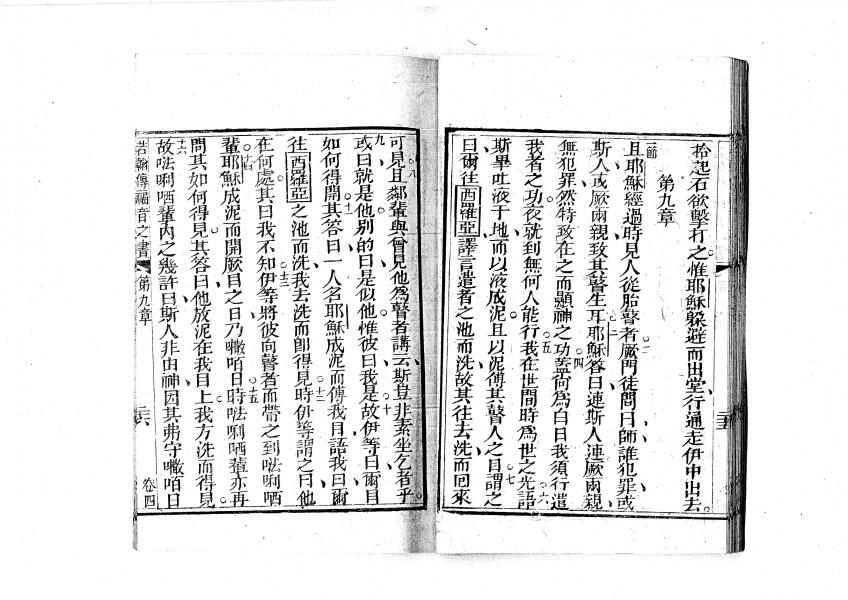 拾起石欲擊打之惟耶穌躲避而出堂行通走伊中出去
第九章
一節 且耶穌經過時見人從胎瞽者厥門徒問曰師誰犯罪或
斯人或厥兩親致其瞽生耳耶穌答曰連斯人連厥兩親
無犯罪然特致在之而顯神之功蓋尚為白日我須行遣
我者之功夜就到無何人能行我在世間時為世之光語
斯畢吐液于地而以液成泥且以泥傅其瞽人之目謂之
曰爾往西羅亞譯言遣者之池而洗故其往去洗而回來
可見且鄰輩與曾見他為瞽者講云斯豈非素坐乞者乎
或曰就是他別的曰是似他惟彼曰我是故伊等曰爾目
如何得開其答曰一人名耶穌成泥而傅我目語我曰爾
往西羅亞之池而洗我去洗而卽得見時伊等謂之曰他
在何處其曰我不知伊等將彼向瞽者而帶之到𠵽唎哂
輩耶穌成泥而開厥目之日乃𠾖咟日時𠵽唎哂輩亦再
問其如何得見其答曰他放泥在我目上我方洗而得見
故𠵽唎哂輩內之幾許曰斯人非由神因其弗守𠾖咟日
若翰傳福音之書 第九章 二六 卷四